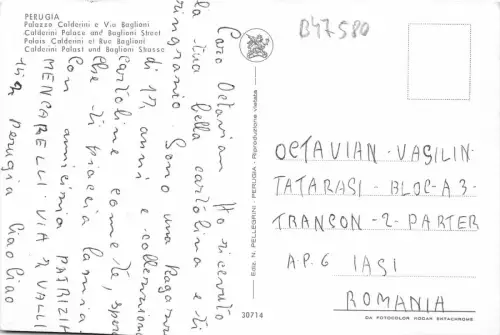 PERUGIA
Palazzo Calderini e Via Baglioni
Calderini Palace and Baglioni Street
Palais Calderini et Rue Baglioni
Calderini Palast und Baglioni Strasse
B47580
Caro Octavian Ho ricevuto
la tua bella cartolina e ti
ringrazio. Sono una Ragazza
di 17 anni e colleziono
cartoline come te, spero
che ti piaccia la mia
Con amicizia PATRIZIA
MENCARELLI VIA 2 VALLI
Perugia Ciao Ciao
Ediz. N. PELLEGRINI - PERUGIA - Riproduzione vietata
30714
OCTAVIAN - VASILIN
TATARASI - BLOC-A3-
TRANSON-2-PARTER
AP.6 IASI
ROMANIA
DA FOTOCOLOR KODAK EKTACHROME